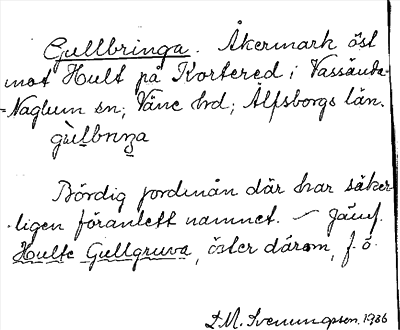 Gullbringa. Åkermark öst
mot Hult på Kortered i Vassända-
-Naglum sn; Väne hd; Älfsborgs län.
gùlbrıŋa
Bördig jordmån där har säker-
ligen föranlett namnet. – Jämf.
Hulte Gullgruva, öster därom, f. ö.
D.M. Svenungsson. 1926